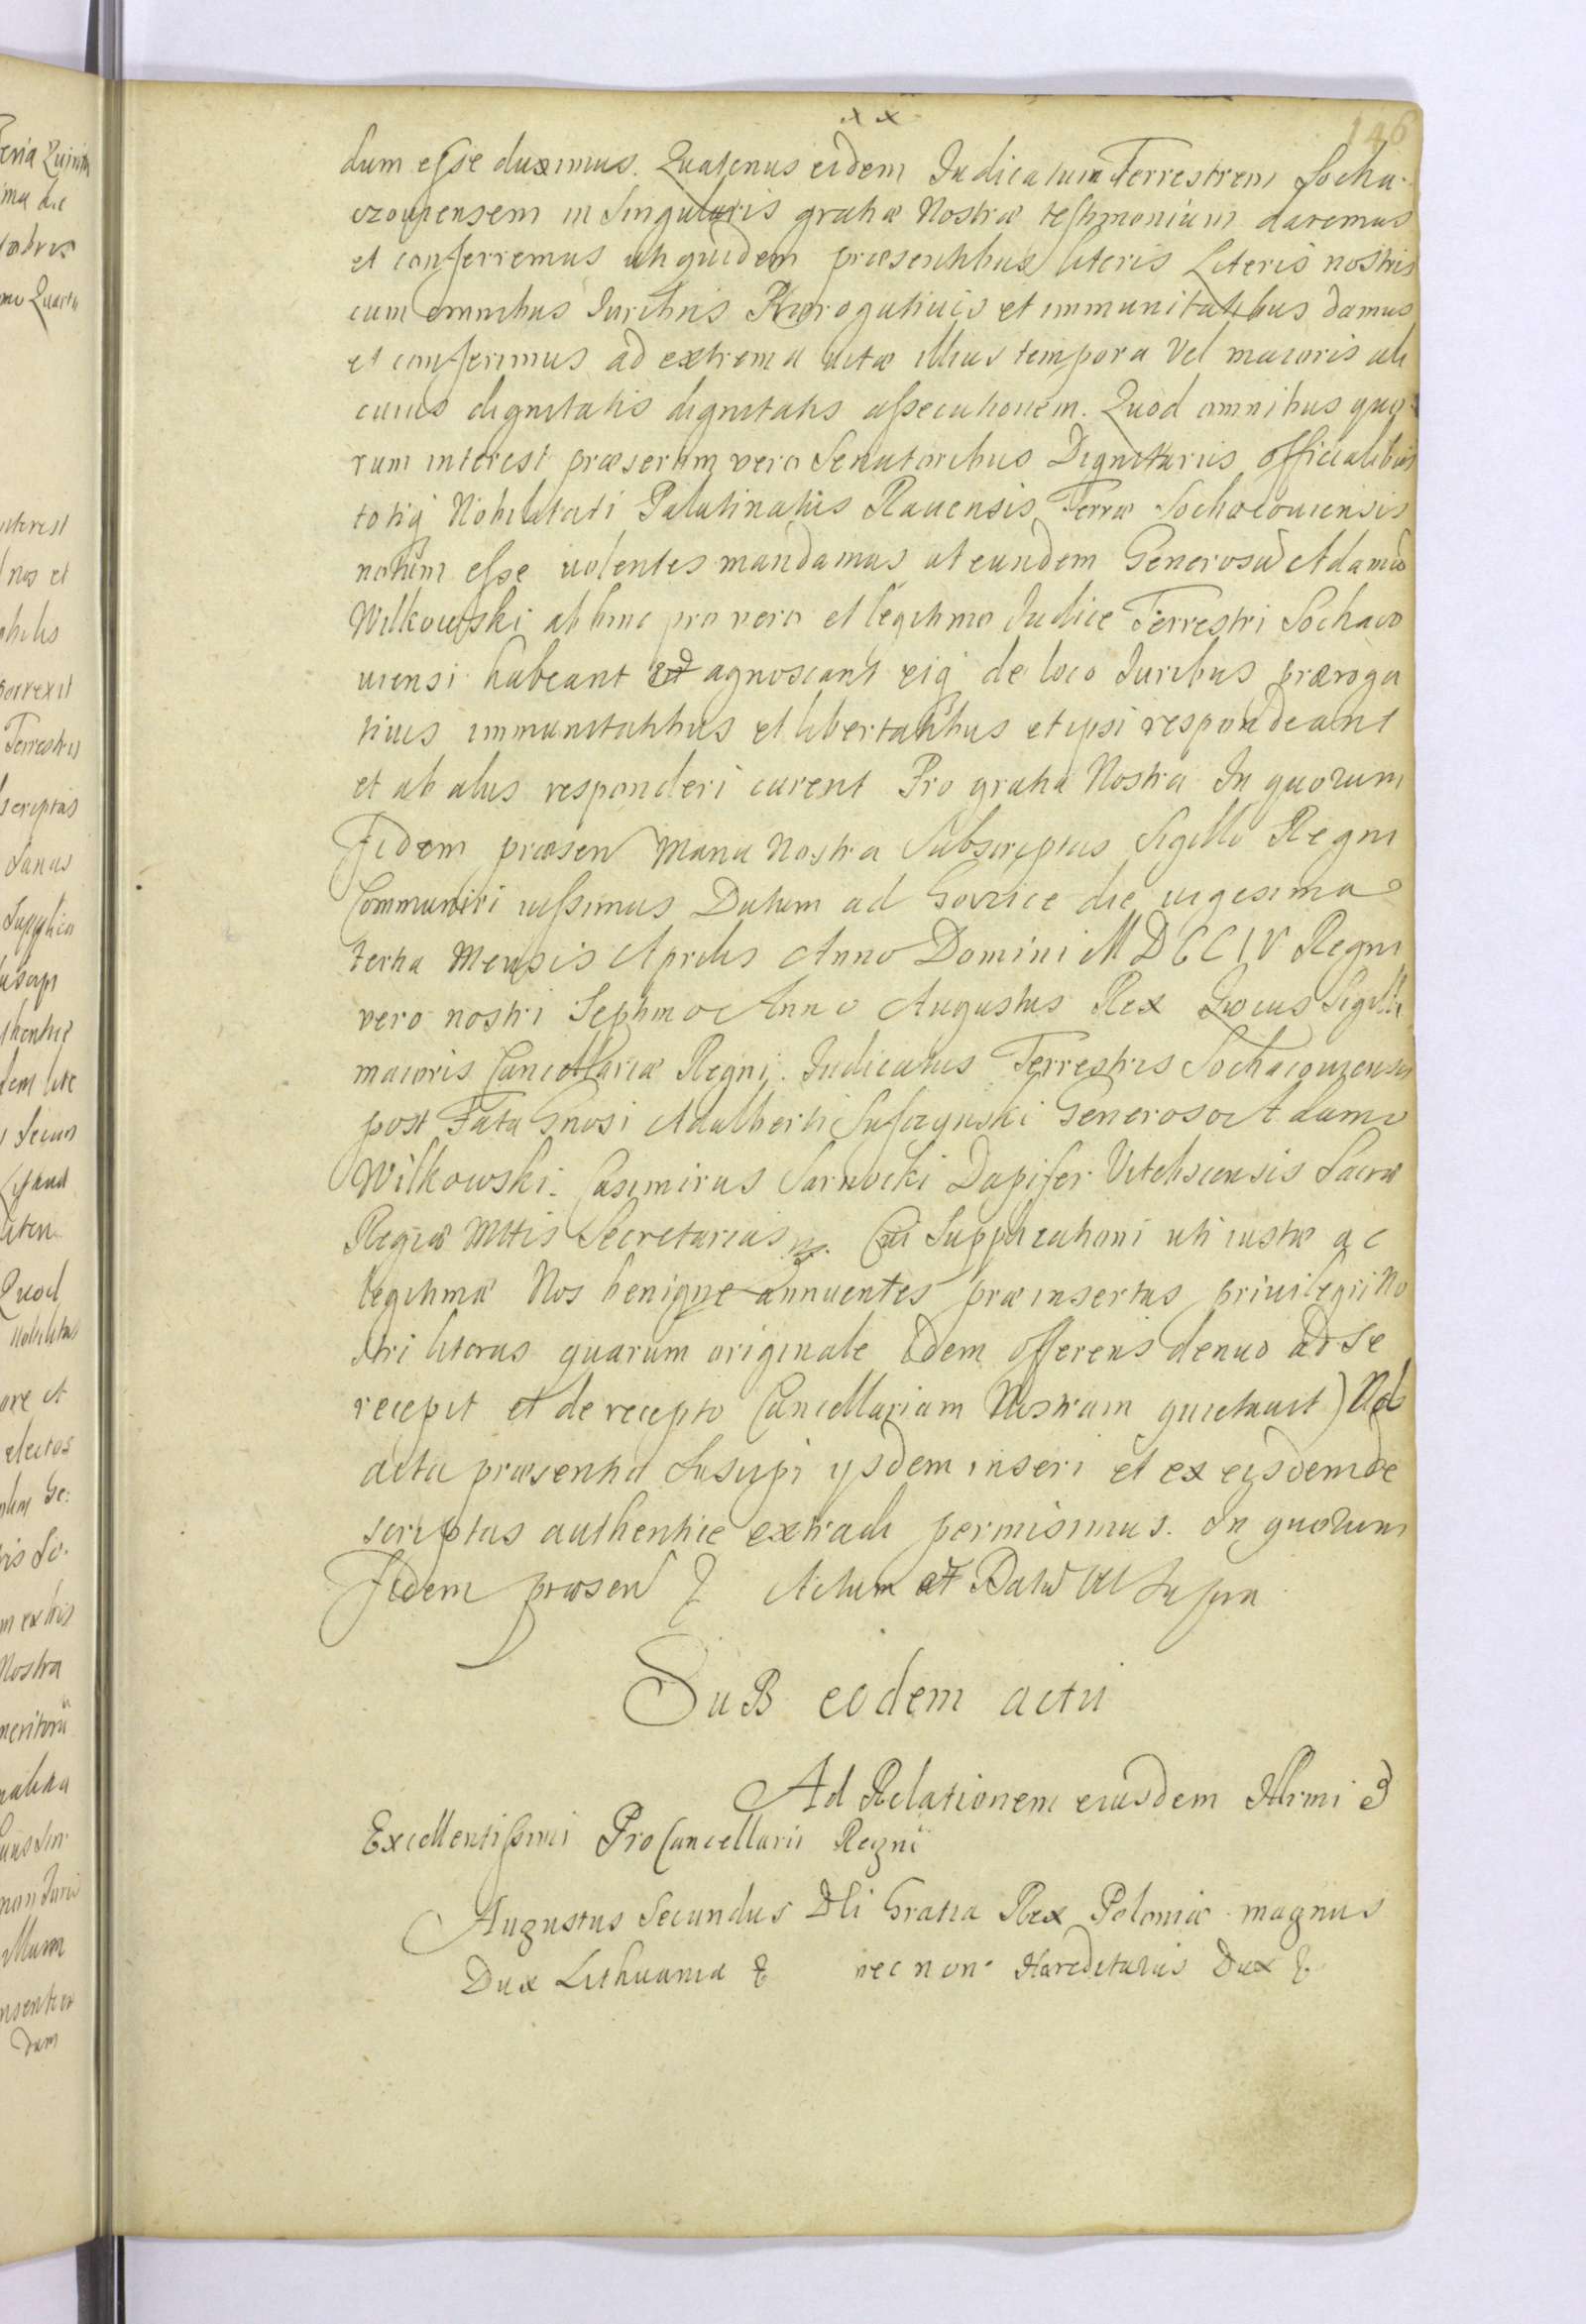 xx
146
dum esse duximus. Quatenus eidem Iudicatum Terrestrem Socha-
czouiensem in Singularis gratiæ Nostræ testimonium daremus
et conferremus uti quidem præsentibus literis Literis nostris
cum omnibus Iuribus Prærogatiuis et immunitatibus damus
et conferimus ad extrema uitæ illius tempora Vel maioris ali
cuius dignitatis dignitatis assecutionem. Quod omnibus quo-
rum interest præsertim vero Senatoribus Dignitariis officialibus
totiq Nobilitati Palatinatus Rauensis Terræ Sochacouiensis
notum esse uolentes mandamus ut eundem Generosũ Adamũ
Wilkowski abhinc pro vero et legitimo Iudice Terrestri Sochaco
uiensi habeant et agnoscant eiq de loco Iuribus præroga
tiuis immunitatibus et libertatibus et ipsi respondeant
et ab aliis responderi curent Pro gratia Nostra In quorum
Fidem præsen Manu Nostra Subscriptas Sigillo Regni
Communiri iussimus Datum ad Gorzice die uigesima
tertia Mensis Aprilis Anno Domini MDCCIV Regni
vero nostri Septimo Anno Augustus Rex Locus Sigilli
maioris Cancellariæ Regni. Iudicatus Terrestris Sochacouiensis
post Fata Gnosi Adalberti Sufczynski Generoso Adamo
Wilkowski. Casimirus Sarnocki Dapifer Vitebscensis Sacræ
Regiæ Mttis Secretarius Cui Supplicationi uti iustæ ac
legitimæ Nos benigne annuentes præinsertas priuilegii No
stri literas quarum originale idem offerens denuo ad se
recepit et de recepto Cancellariam Nostram quietauit) Ad
acta præsentia Suscipi ysdem inseri et ex eisdem de
scriptas authentice extradi permisimus. In quorum
Fidem præsen & Actum et Datũ ut Supra
SuB eodem actu
Ad Relationem eiusdem Illrmi &
Excellentissimi ProCancellarii Regni
Augustus Secundus Dei Gratia Rex Poloniæ magnus
Dux Lithuaniæ & nec non Hæreditarius Dux &